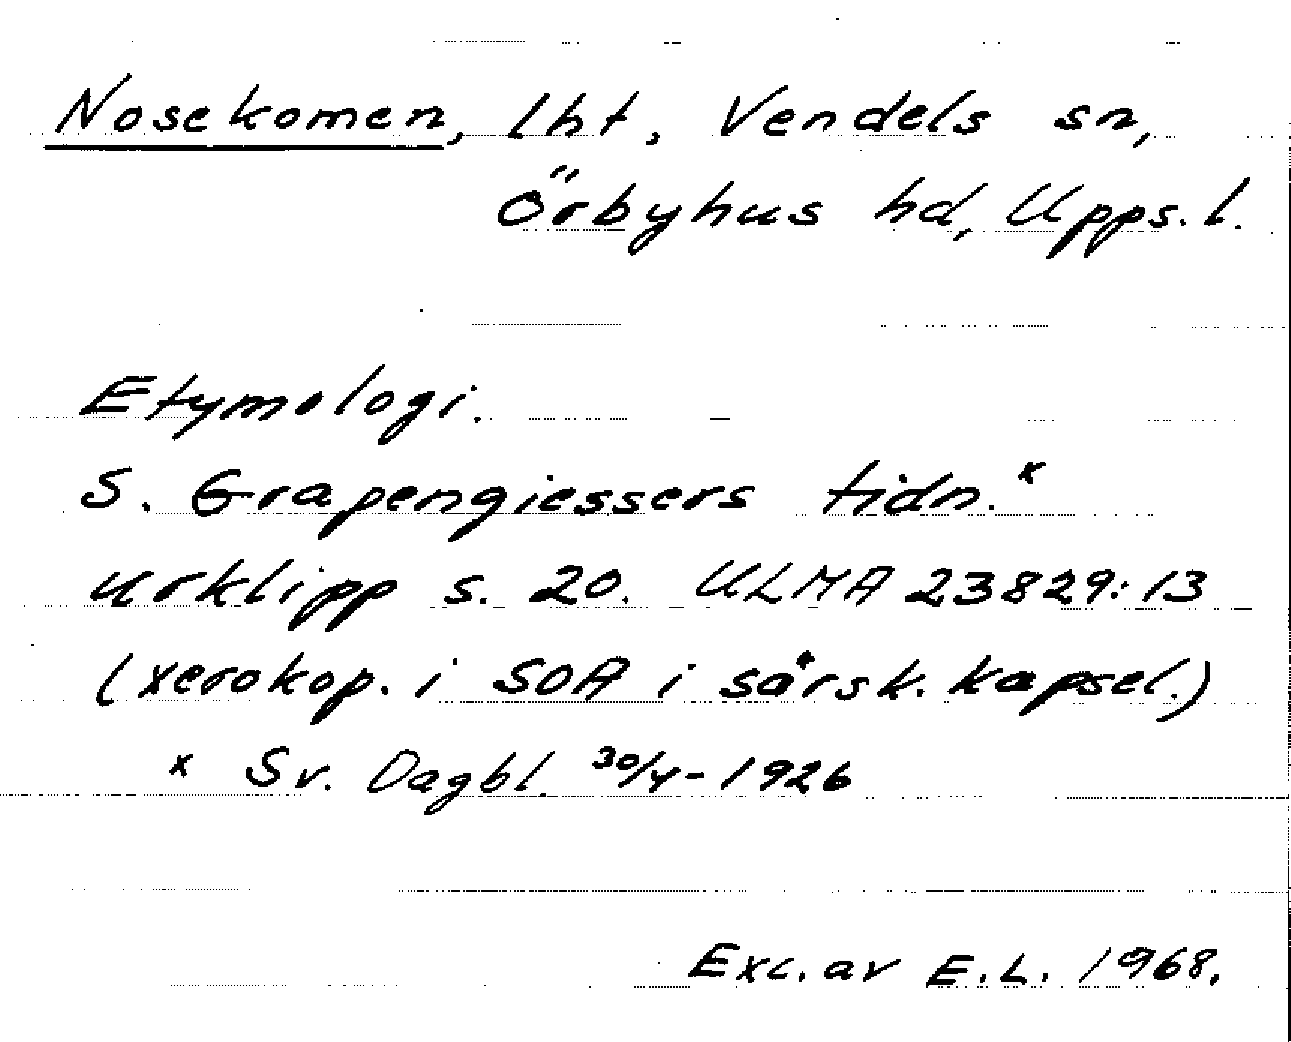 Nosekomen, lht, Vendels sn,
Örbyhus hd, Upps. l.
Etymologi.
S. Grapengiessers tidn.x
urklipp s. 20. ULMA 23829:13
(xerokop. i SOA i särsk. kapsel.)
x Sv. Dagbl. 30/4-1926
Exc. av E.L. 1968.